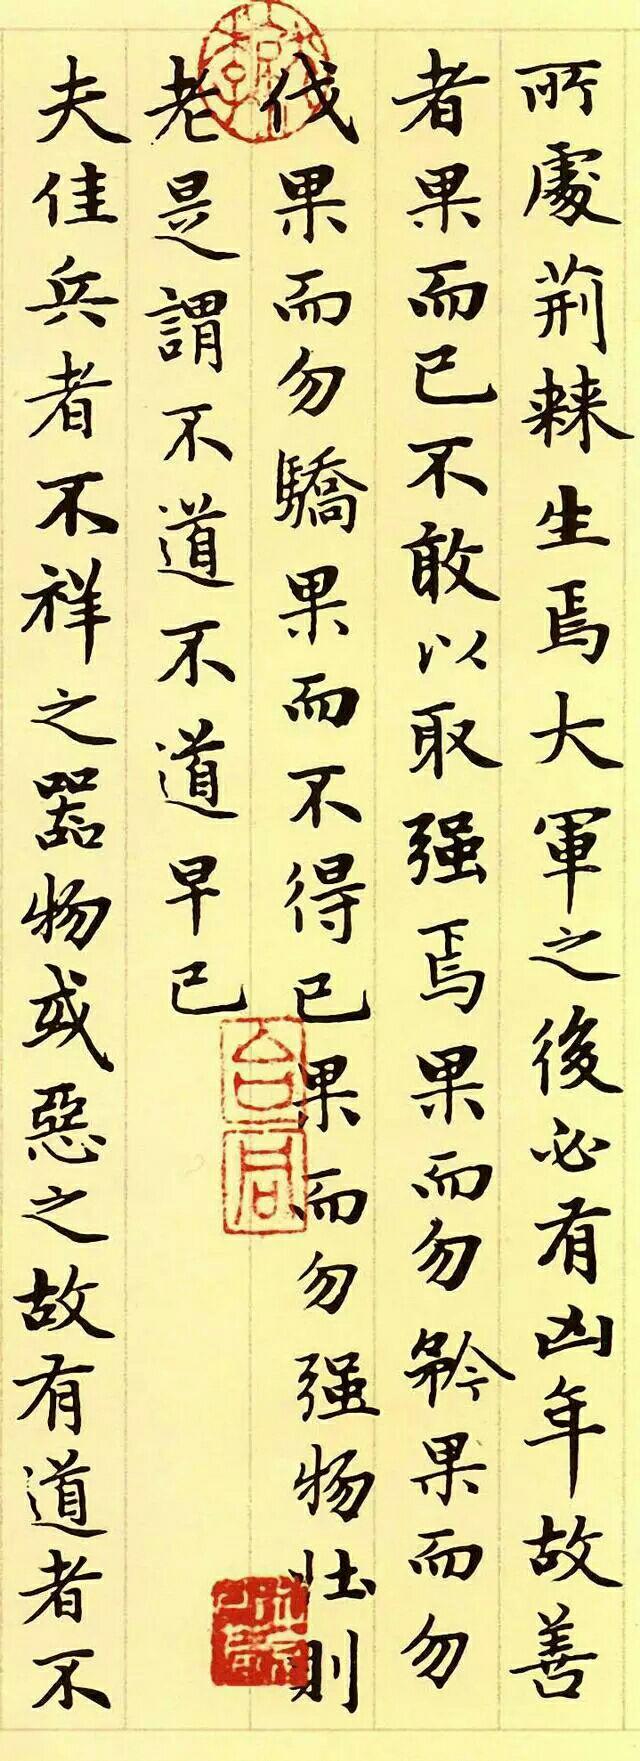 所處荆棘生焉大軍之後必有凶年故善
者果而已不敢以取强焉果而勿矜果而勿
伐果而勿驕果而不得已果而勿强物壯則
老是謂不道不道早已
夫佳兵者不祥之器物或惡之故有道者不